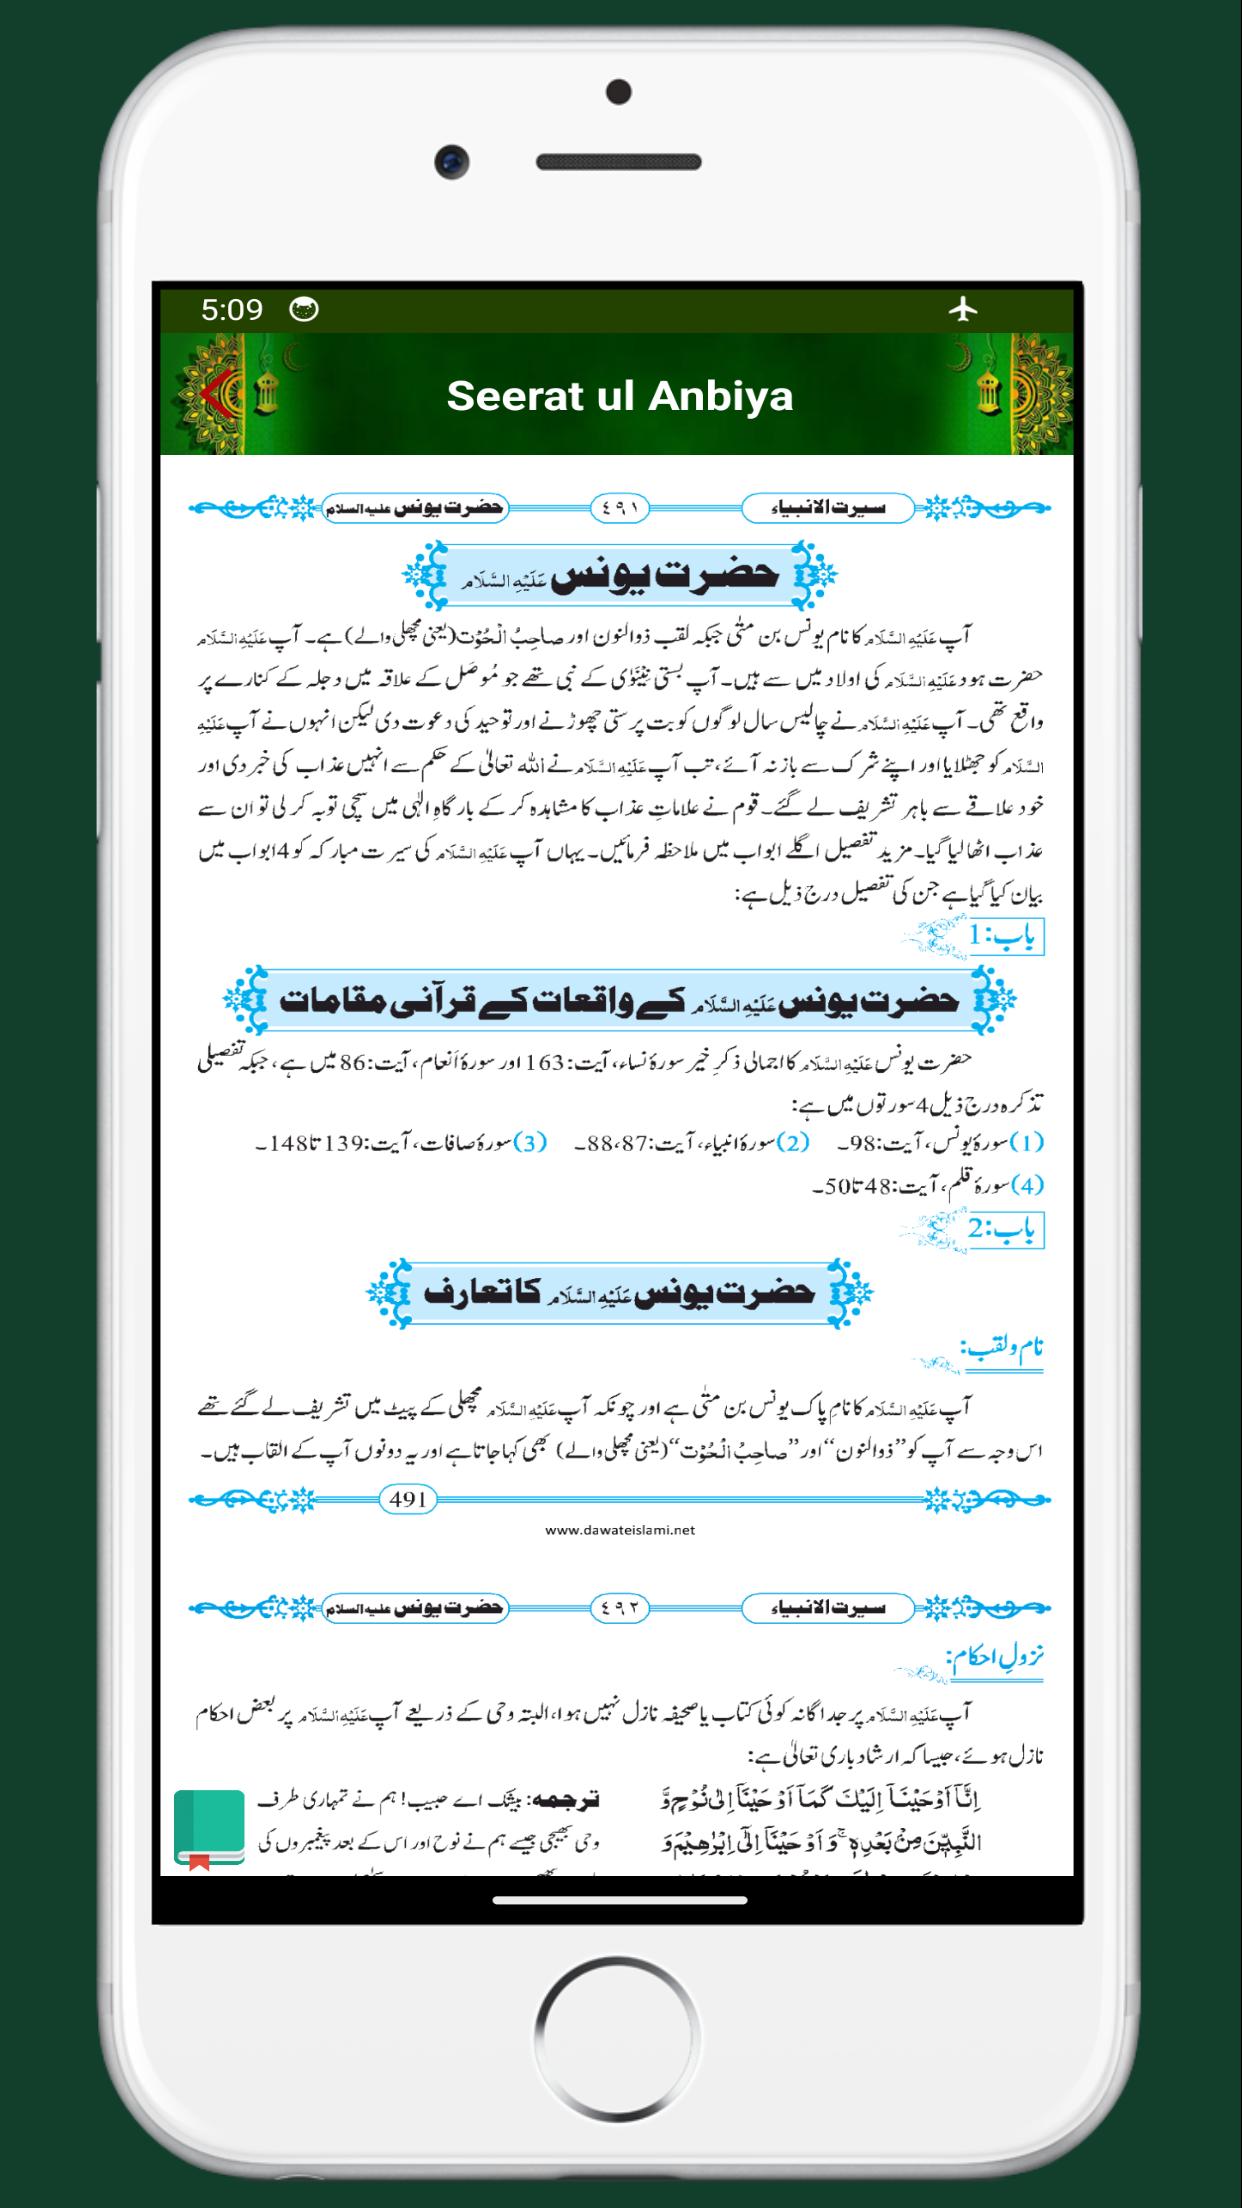 5:09
Seerat ul Anbiya
سیرت الانبیاء ٤٩١ حضرت یونس علیہ السلام
حضرت یونس عَلَیْہِ السَّلَام
آپ عَلَیْہِ السَّلَام کا نام یونس بن متّٰی جبکہ لقب ذوالنون اور صاحِبُ الْحُوْت (یعنی مچھلی والے) ہے۔ آپ عَلَیْہِ السَّلَام
حضرت ہود عَلَیْہِ السَّلَام کی اولاد میں سے ہیں۔ آپ بستی نِیْنَوٰی کے نبی تھے جو مُوصَل کے علاقہ میں دجلہ کے کنارے پر
واقع تھی۔ آپ عَلَیْہِ السَّلَام نے چالیس سال لوگوں کو بت پرستی چھوڑنے اور توحید کی دعوت دی لیکن انہوں نے آپ عَلَیْہِ
السَّلَام کو جھٹلایا اور اپنے شرک سے باز نہ آئے، تب آپ عَلَیْہِ السَّلَام نے اللہ تعالیٰ کے حکم سے انہیں عذاب کی خبر دی اور
خود علاقے سے باہر تشریف لے گئے۔ قوم نے علاماتِ عذاب کا مشاہدہ کر کے بارگاہِ الٰہی میں سچی توبہ کر لی تو ان سے
عذاب اٹھا لیا گیا۔ مزید تفصیل اگلے ابواب میں ملاحظہ فرمائیں۔ یہاں آپ عَلَیْہِ السَّلَام کی سیرت مبارکہ کو 4 ابواب میں
بیان کیا گیا ہے جن کی تفصیل درج ذیل ہے:
باب: 1
حضرت یونس عَلَیْہِ السَّلَام کے واقعات کے قرآنی مقامات
حضرت یونس عَلَیْہِ السَّلَام کا اجمالی ذکرِ خیر سورۂ نساء، آیت: 163 اور سورۂ اَنعام، آیت: 86 میں ہے، جبکہ تفصیلی
تذکرہ درج ذیل 4 سورتوں میں ہے:
(1) سورۂ یونس، آیت: 98۔ (2) سورۂ انبیاء، آیت: 87، 88۔ (3) سورۂ صافات، آیت: 139 تا 148۔
(4) سورۂ قلم، آیت: 48 تا 50۔
باب: 2
حضرت یونس عَلَیْہِ السَّلَام کا تعارف
نام و لقب:
آپ عَلَیْہِ السَّلَام کا نامِ پاک یونس بن متّٰی ہے اور چونکہ آپ عَلَیْہِ السَّلَام مچھلی کے پیٹ میں تشریف لے گئے تھے
اس وجہ سے آپ کو ”ذوالنون“ اور ”صاحِبُ الْحُوْت“ (یعنی مچھلی والے) بھی کہا جاتا ہے اور یہ دونوں آپ کے القاب ہیں۔
491
www.dawateislami.net
سیرت الانبیاء ٤٩٢ حضرت یونس علیہ السلام
نزولِ احکام:
آپ عَلَیْہِ السَّلَام پر جداگانہ کوئی کتاب یا صحیفہ نازل نہیں ہوا، البتہ وحی کے ذریعے آپ عَلَیْہِ السَّلَام پر بعض احکام
نازل ہوئے، جیسا کہ ارشاد باری تعالیٰ ہے:
اِنَّاۤ اَوْحَیْنَاۤ اِلَیْكَ كَمَاۤ اَوْحَیْنَاۤ اِلٰى نُوْحٍ وَّ ترجمہ: بیشک اے حبیب! ہم نے تمہاری طرف
النَّبِیّٖنَ مِنْۢ بَعْدِهٖ ۚ وَ اَوْحَیْنَاۤ اِلٰۤى اِبْرٰهِیْمَ وَ وحی بھیجی جیسے ہم نے نوح اور اس کے بعد پیغمبروں کی